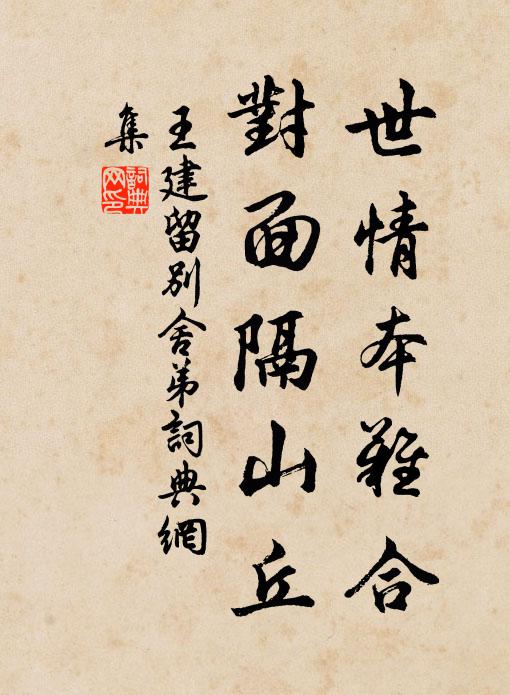 世情本難合
對面隔山丘
王建留別舍弟詞典網
集
詞典
网印